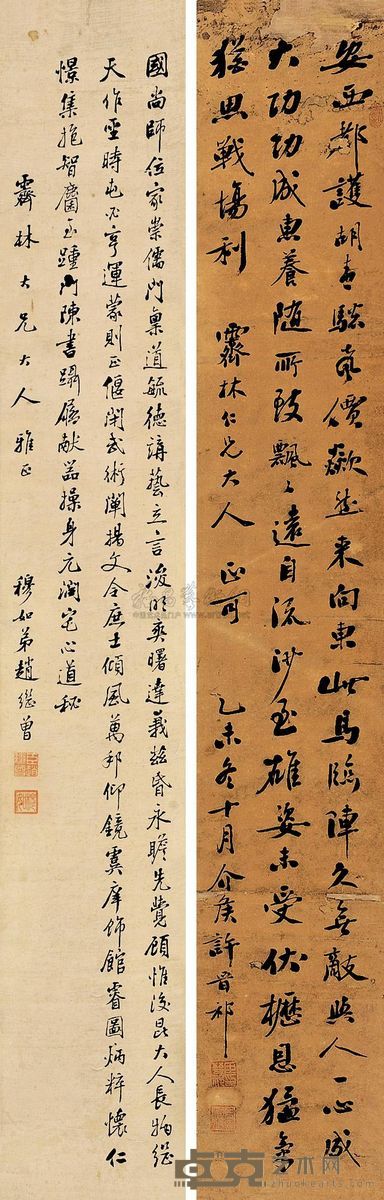 安西都護胡青驄聲價欻然來向東此馬臨陣久無敵與人一心成
大功功成惠養隨所致飄飄遠自流沙至雄姿未受伏櫪恩猛氣
猶思戰場利 霽林仁兄大人 正可 乙未冬十月介侯許晉祁
國尚師位家崇儒門稟道毓德講藝立言浚明爽曙達義茲昏永瞻先覺顧惟後昆大人長物繼
天作聖時屯必亨運蒙則正偃閉武術闡揚文令庶士傾風萬邦仰鏡虞庠飾館睿圖炳粹懷仁
憬集抱智麕至踵門陳書躡屩献器操身元淵宅心道秘
霽林大兄大人雅正 穆如弟趙繼曾
卓克艺术网
www.zhuokearts.com